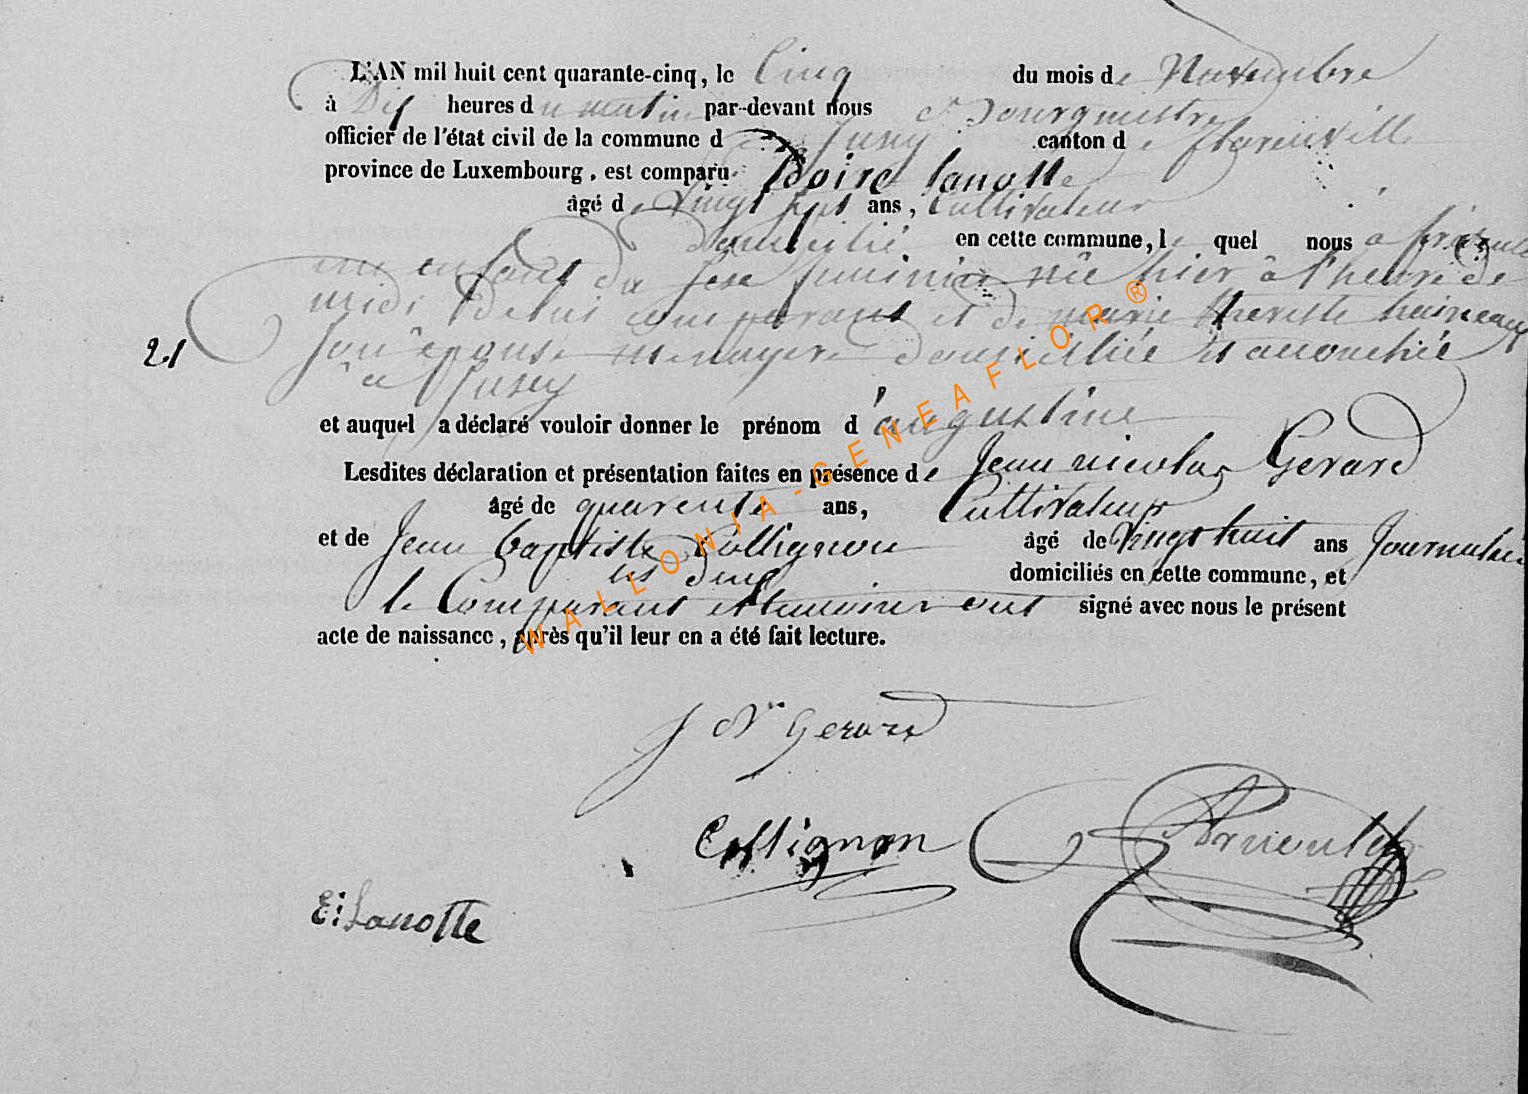 L'AN mil huit cent quarante-cinq, le Cinq du mois de Novembre
à Dix heures du matin par-devant nous Bourgmestre
officier de l'état civil de la commune de Jusey canton de florenville
province de Luxembourg, est comparu isidoire Lanotte
âgé de Vingt sept ans, Cultivateur
domicilié en cette commune, lequel nous a présenté
un enfant du sexe feminin née hier à l'heure de
midi de lui comparant et de marie thereste
21 son épouse menagere domiciliée et accouchée
à Jusey
et auquel a déclaré vouloir donner le prénom d'augustine
Lesdites déclaration et présentation faites en présence de Jean nicolas Gerard
âgé de quarente ans, Cultivateur
et de Jean baptiste Collignon âgé de Vingt huit ans Journalier
les deux domiciliés en cette commune, et
le Comparant et temoins ont signé avec nous le présent
acte de naissance, après qu'il leur en a été fait lecture.
J N Gerard
Collignon Arnould
Ei Lanotte
WALLONIA-GENEAFLOR®